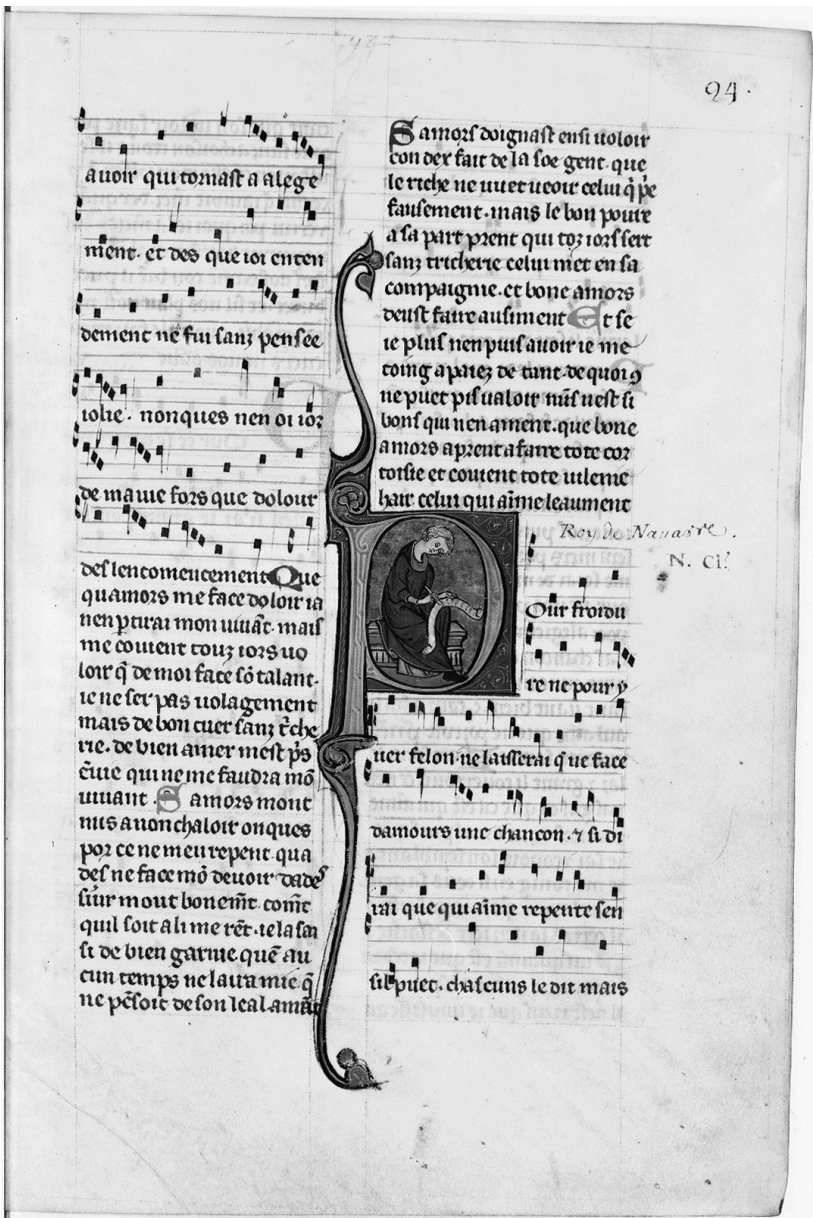 24.
avoir qui tornast a alege
ment. et des que ioi enten
dement ne fui sanz pensee
iolie. nonques nen oi ior
de ma uie fors que dolour
des lencomencement Que
quamors me face doloir ia
nen ꝑtirai mon uiuāt. mais
me couient touz iors uo
loir q̄ de moi face sō talant.
ie ne ser pas uolagement
mais de bon cuer sanz tͬche
rie. de bien amer mest pͥs
ēuie qui ne me faudra mō
uiuant. S amors mont
mis a nonchaloir onques
por ce ne meu repent. qua
des ne face mō deuoir dade
siur mout bonemt̄. comt̄
quil soit a li me rēt. ie la sai
si de bien garnie. quē au
cun temps ne laura mie q̄
ne pēsoit de son leal amāt
S amors doignast ensi uoloir
con dex fait de la soe gent. que
le riche ne uuet ueoir celui q̄ pͬe
fausement. mais le bon poure
a sa part prent qui toz iors sert
sanz tricherie celui met en sa
compaignie. et bone amors
deust faire ausiment Et se
ie plus nen puis auoir ie me
toing a paiez de tant. de quoi ꝯ
ne puet pis ualoir nus nest si
bons qui nen ament. que bone
amors aprent a faire tote cor
toisie et couient tote uileme
hair celui qui aīme leaument
Roy de Nauarre.
N. Cl.
POur froidu
re ne pour y
uer felon. ne laisserai q̄ ne face
damours une chancon. ⁊ si di
rai que qui aīme repente sen
sil puet. chascuns le dit mais